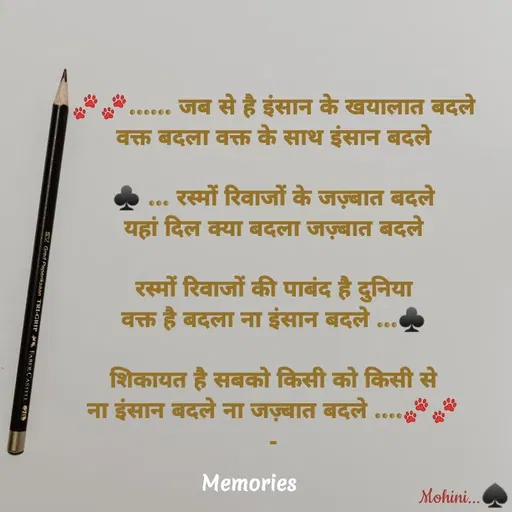 🐾🐾...... जब से है इंसान के खयालात बदले
वक्त बदला वक्त के साथ इंसान बदले
♣ ... रस्मों रिवाजों के जज़्बात बदले
यहां दिल क्या बदला जज़्बात बदले
रस्मों रिवाजों की पाबंद है दुनिया
वक्त है बदला ना इंसान बदले ...♣
शिकायत है सबको किसी को किसी से
ना इंसान बदले ना जज़्बात बदले ....🐾🐾
-
Memories
Mohini...♠
TRI-GRIP
FABER-CASTELL